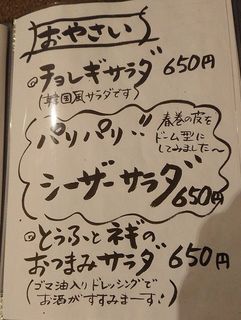 おやさい
チョレギサラダ 650円
(韓国風サラダです)
パリパリ
春巻の皮を
ドーム型に
してみました～
シーザーサラダ 650円
とうふとネギの
おつまみサラダ 650円
(ゴマ油入りドレッシングで
お酒がすすみまーす!)